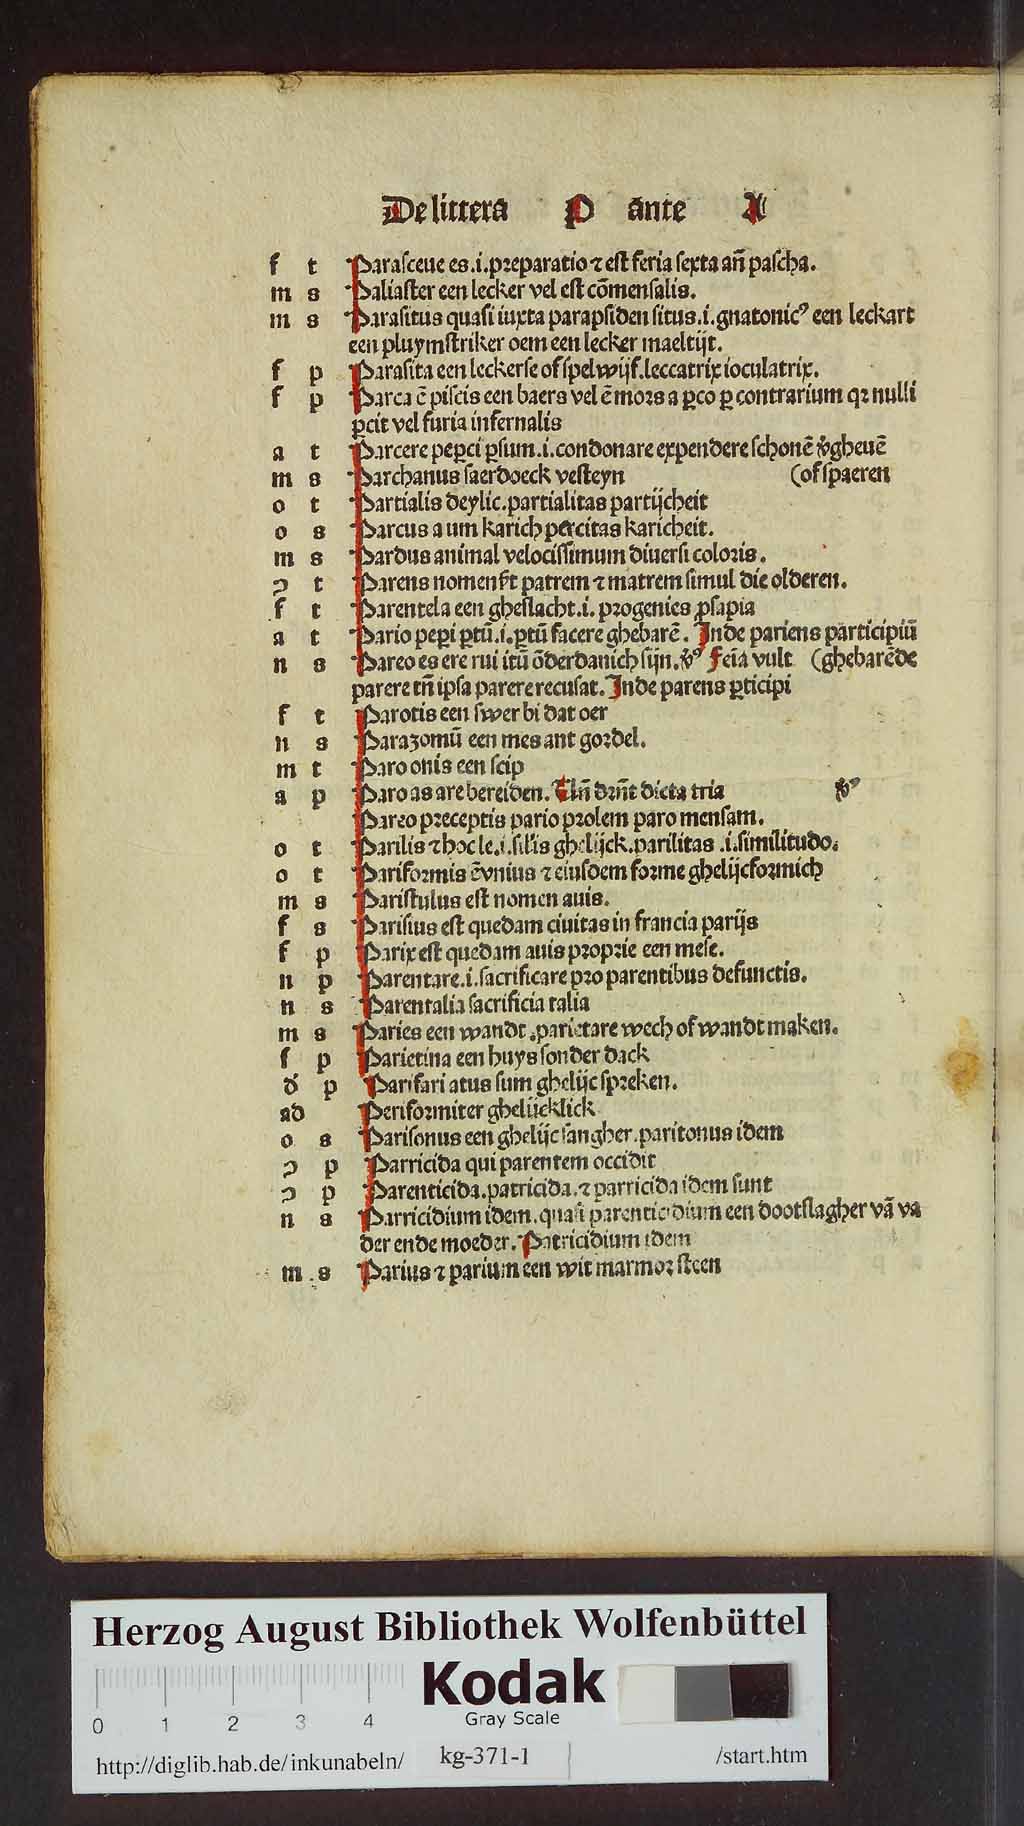 De littera P ante A
f t Parasceue es.i.preparatio ⁊ est feria sexta añ pascha.
m s Paliaster een lecker vel est cōmensalis.
m s Parasitus quasi iuxta parapsiden situs.i.gnatonicꝰ een leckart
een pluymstriker oem een lecker maeltijt.
f p Parasita een leckerse of spelwijf.leccatrix ioculatrix.
f p Parca ē piscis een baers vel ē mors a ꝑco ꝑ contrarium qꝛ nulli
ꝑcit vel furia infernalis
a t Parcere peꝑci ꝑsum.i.condonare expendere schonē v̄gheuē
m s Parchanus saerdoeck vesteyn (of spaeren
o t Partialis deylic.partialitas partijcheit
o s Parcus a um karich percitas karicheit.
m s Pardus animal velocissimum diuersi coloris.
ɔ t Parens nomen patrem ⁊ matrem simul die olderen.
f t Parentela een gheslacht.i.progenies ꝓsapia
a t Pario peꝑi ꝑtū.i.ꝑtū facere ghebarē. Inde pariens participiū
n s Pareo es ere rui itū ōderdanich sijn.v̉ꝰ Feīa vult (ghebarēde
parere tñ ipsa parere recusat. Inde parens ꝑticipi
f t Parotis een swer bi dat oer
n s Parazomū een mes ant gordel.
m t Paro onis een scip
a p Paro as are bereiden. Vñ drñt dicta tria v̉ꝰ
Pareo preceptis pario prolem paro mensam.
o t Parilis ⁊ hoc le.i.sil̄is ghelijck.parilitas .i.similitudo.
o t Pariformis ē vnius ⁊ eiusdem forme ghelijcformich
m s Paristulus est nomen auis.
f s Parisius est quedam ciuitas in francia parijs
f p Parix est quedam auis proprie een mese.
n p Parentare.i.sacrificare pro parentibus defunctis.
n s Parentalia sacrificia talia
m s Paries een wandt.parietare wech of wandt maken.
f p Parietina een huys sonder dack
d̉ p Parifari atus sum ghelijc spreken.
ad Periformiter ghelijcklick
o s Parisonus een ghelijc sangher.paritonus idem
ɔ p Parricida qui parentem occidit
ɔ p Parenticida.patricida.⁊ parricida idem sunt
n s Parricidium idem.quasi parenticidium een dootslagher vā va
der ende moeder. Patricidium idem
m s Parius ⁊ parium een wit marmor steen
Herzog August Bibliothek Wolfenbüttel
Kodak
Gray Scale
0 1 2 3 4
http://diglib.hab.de/inkunabeln/ kg-371-1 /start.htm